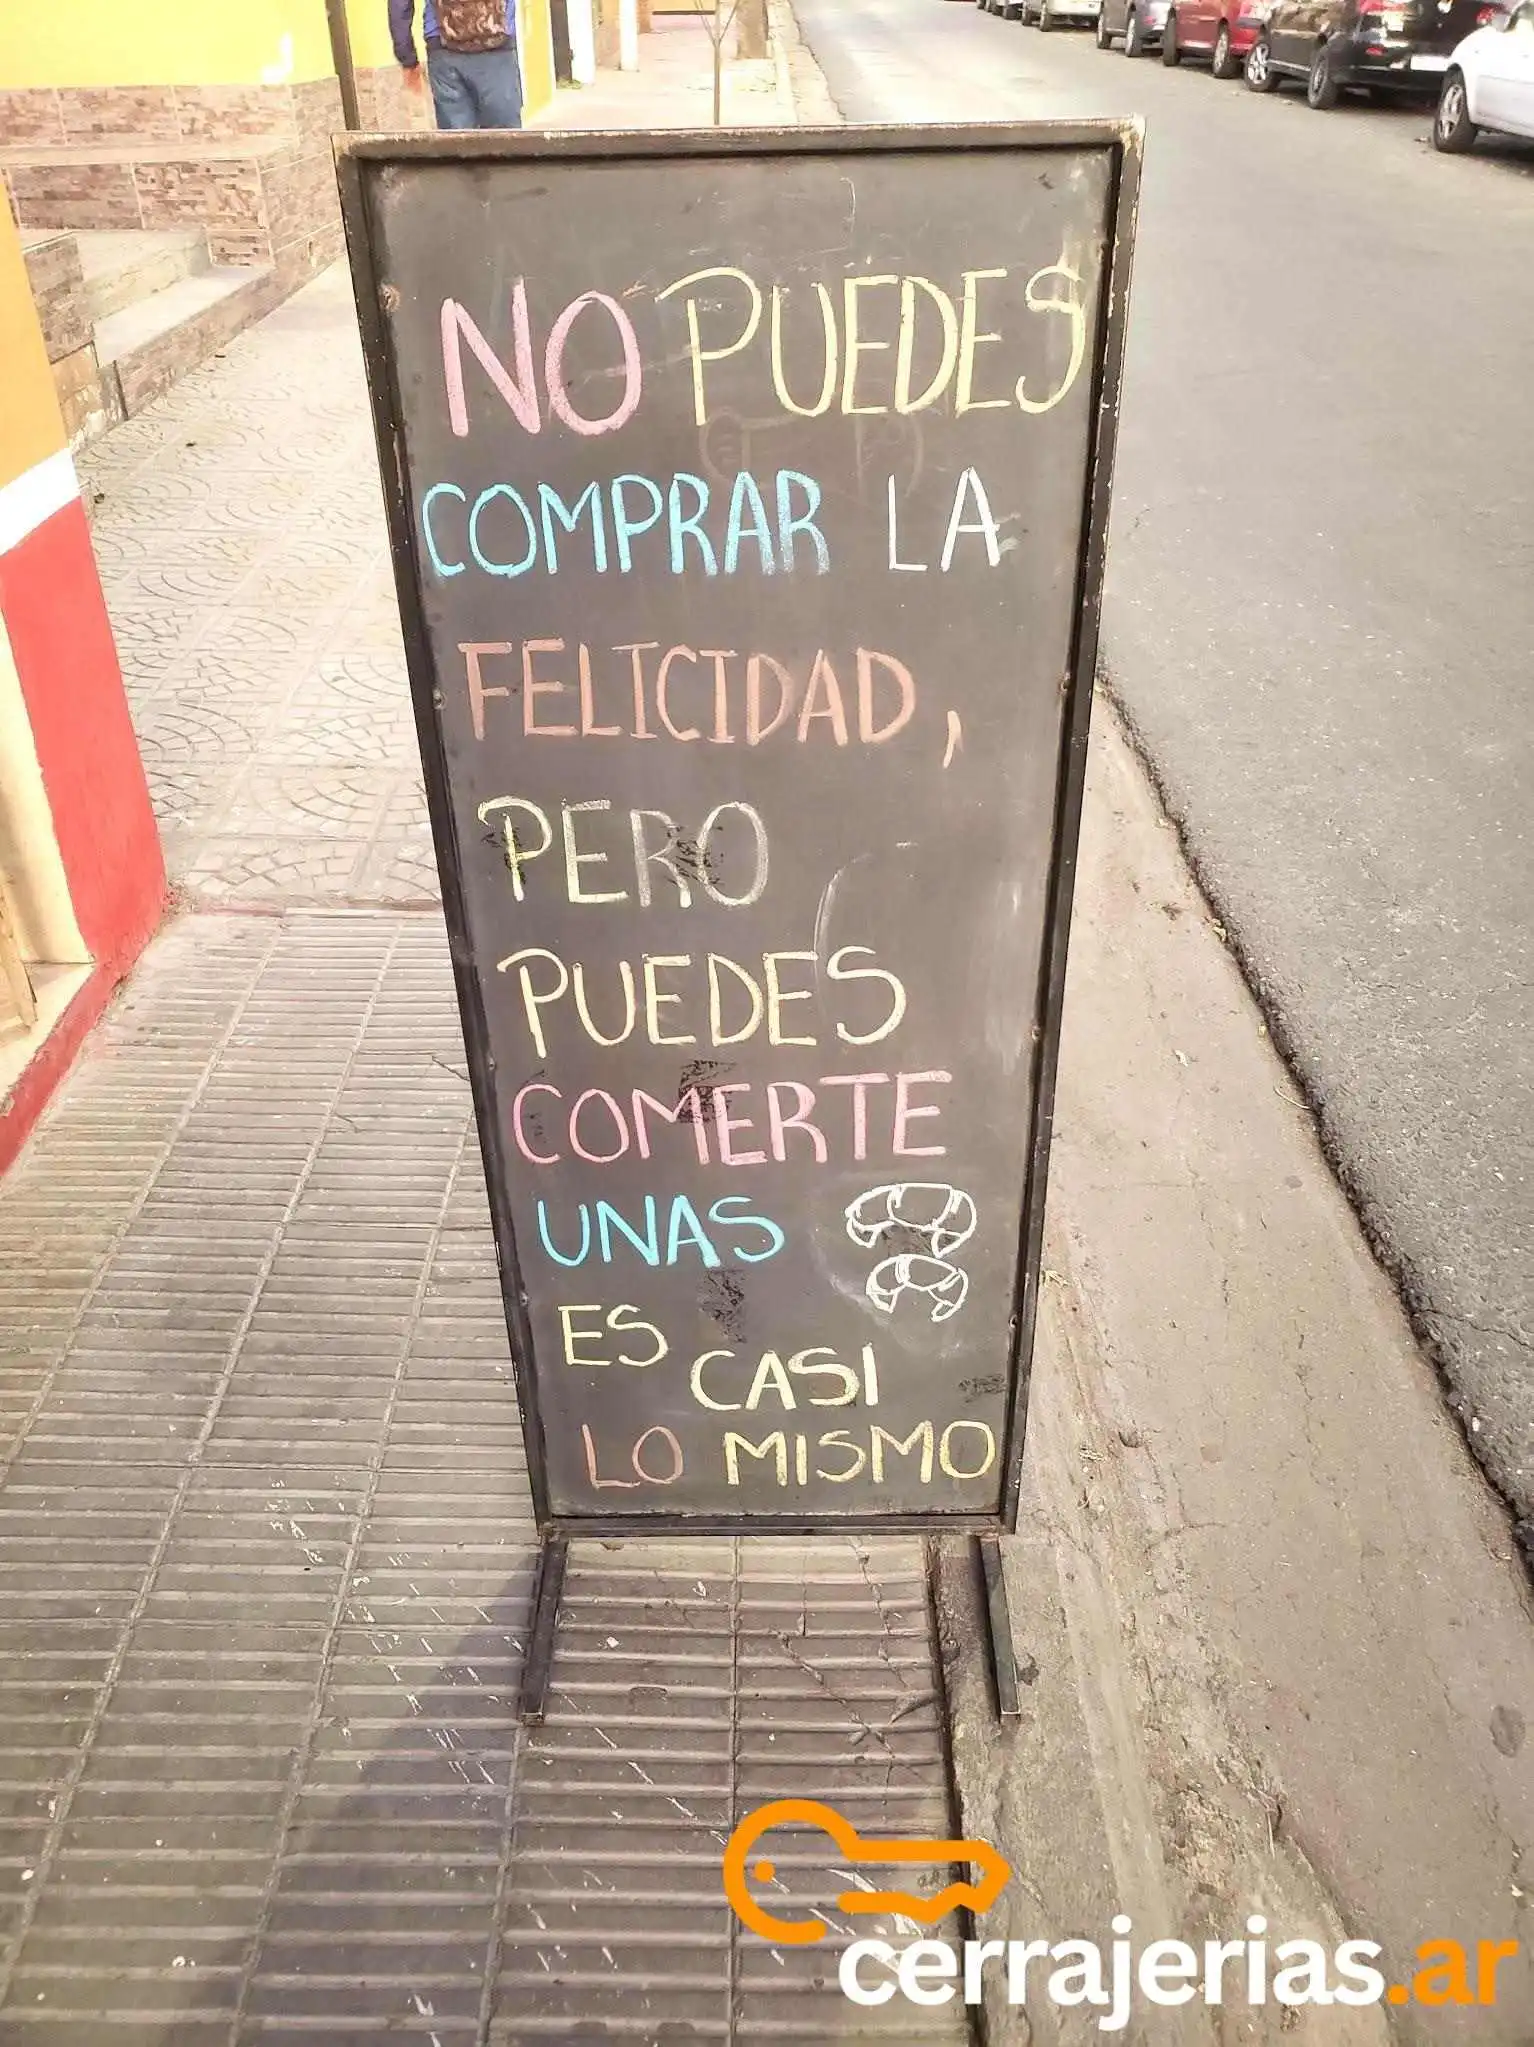 NO PUEDES
COMPRAR LA
FELICIDAD,
PERO
PUEDES
COMERTE
UNAS
ES CASI
LO MISMO
cerrajerias.ar